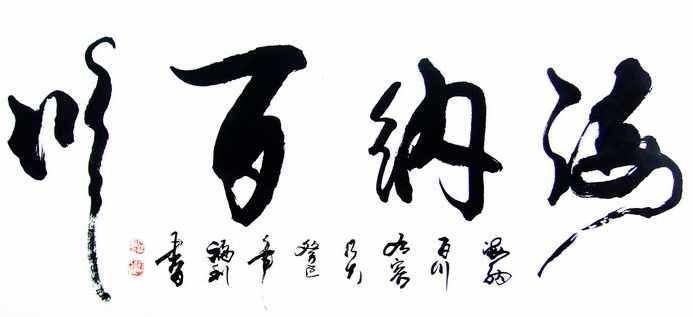 海纳百川
海纳
百川
有容
乃大
癸巳
年
書